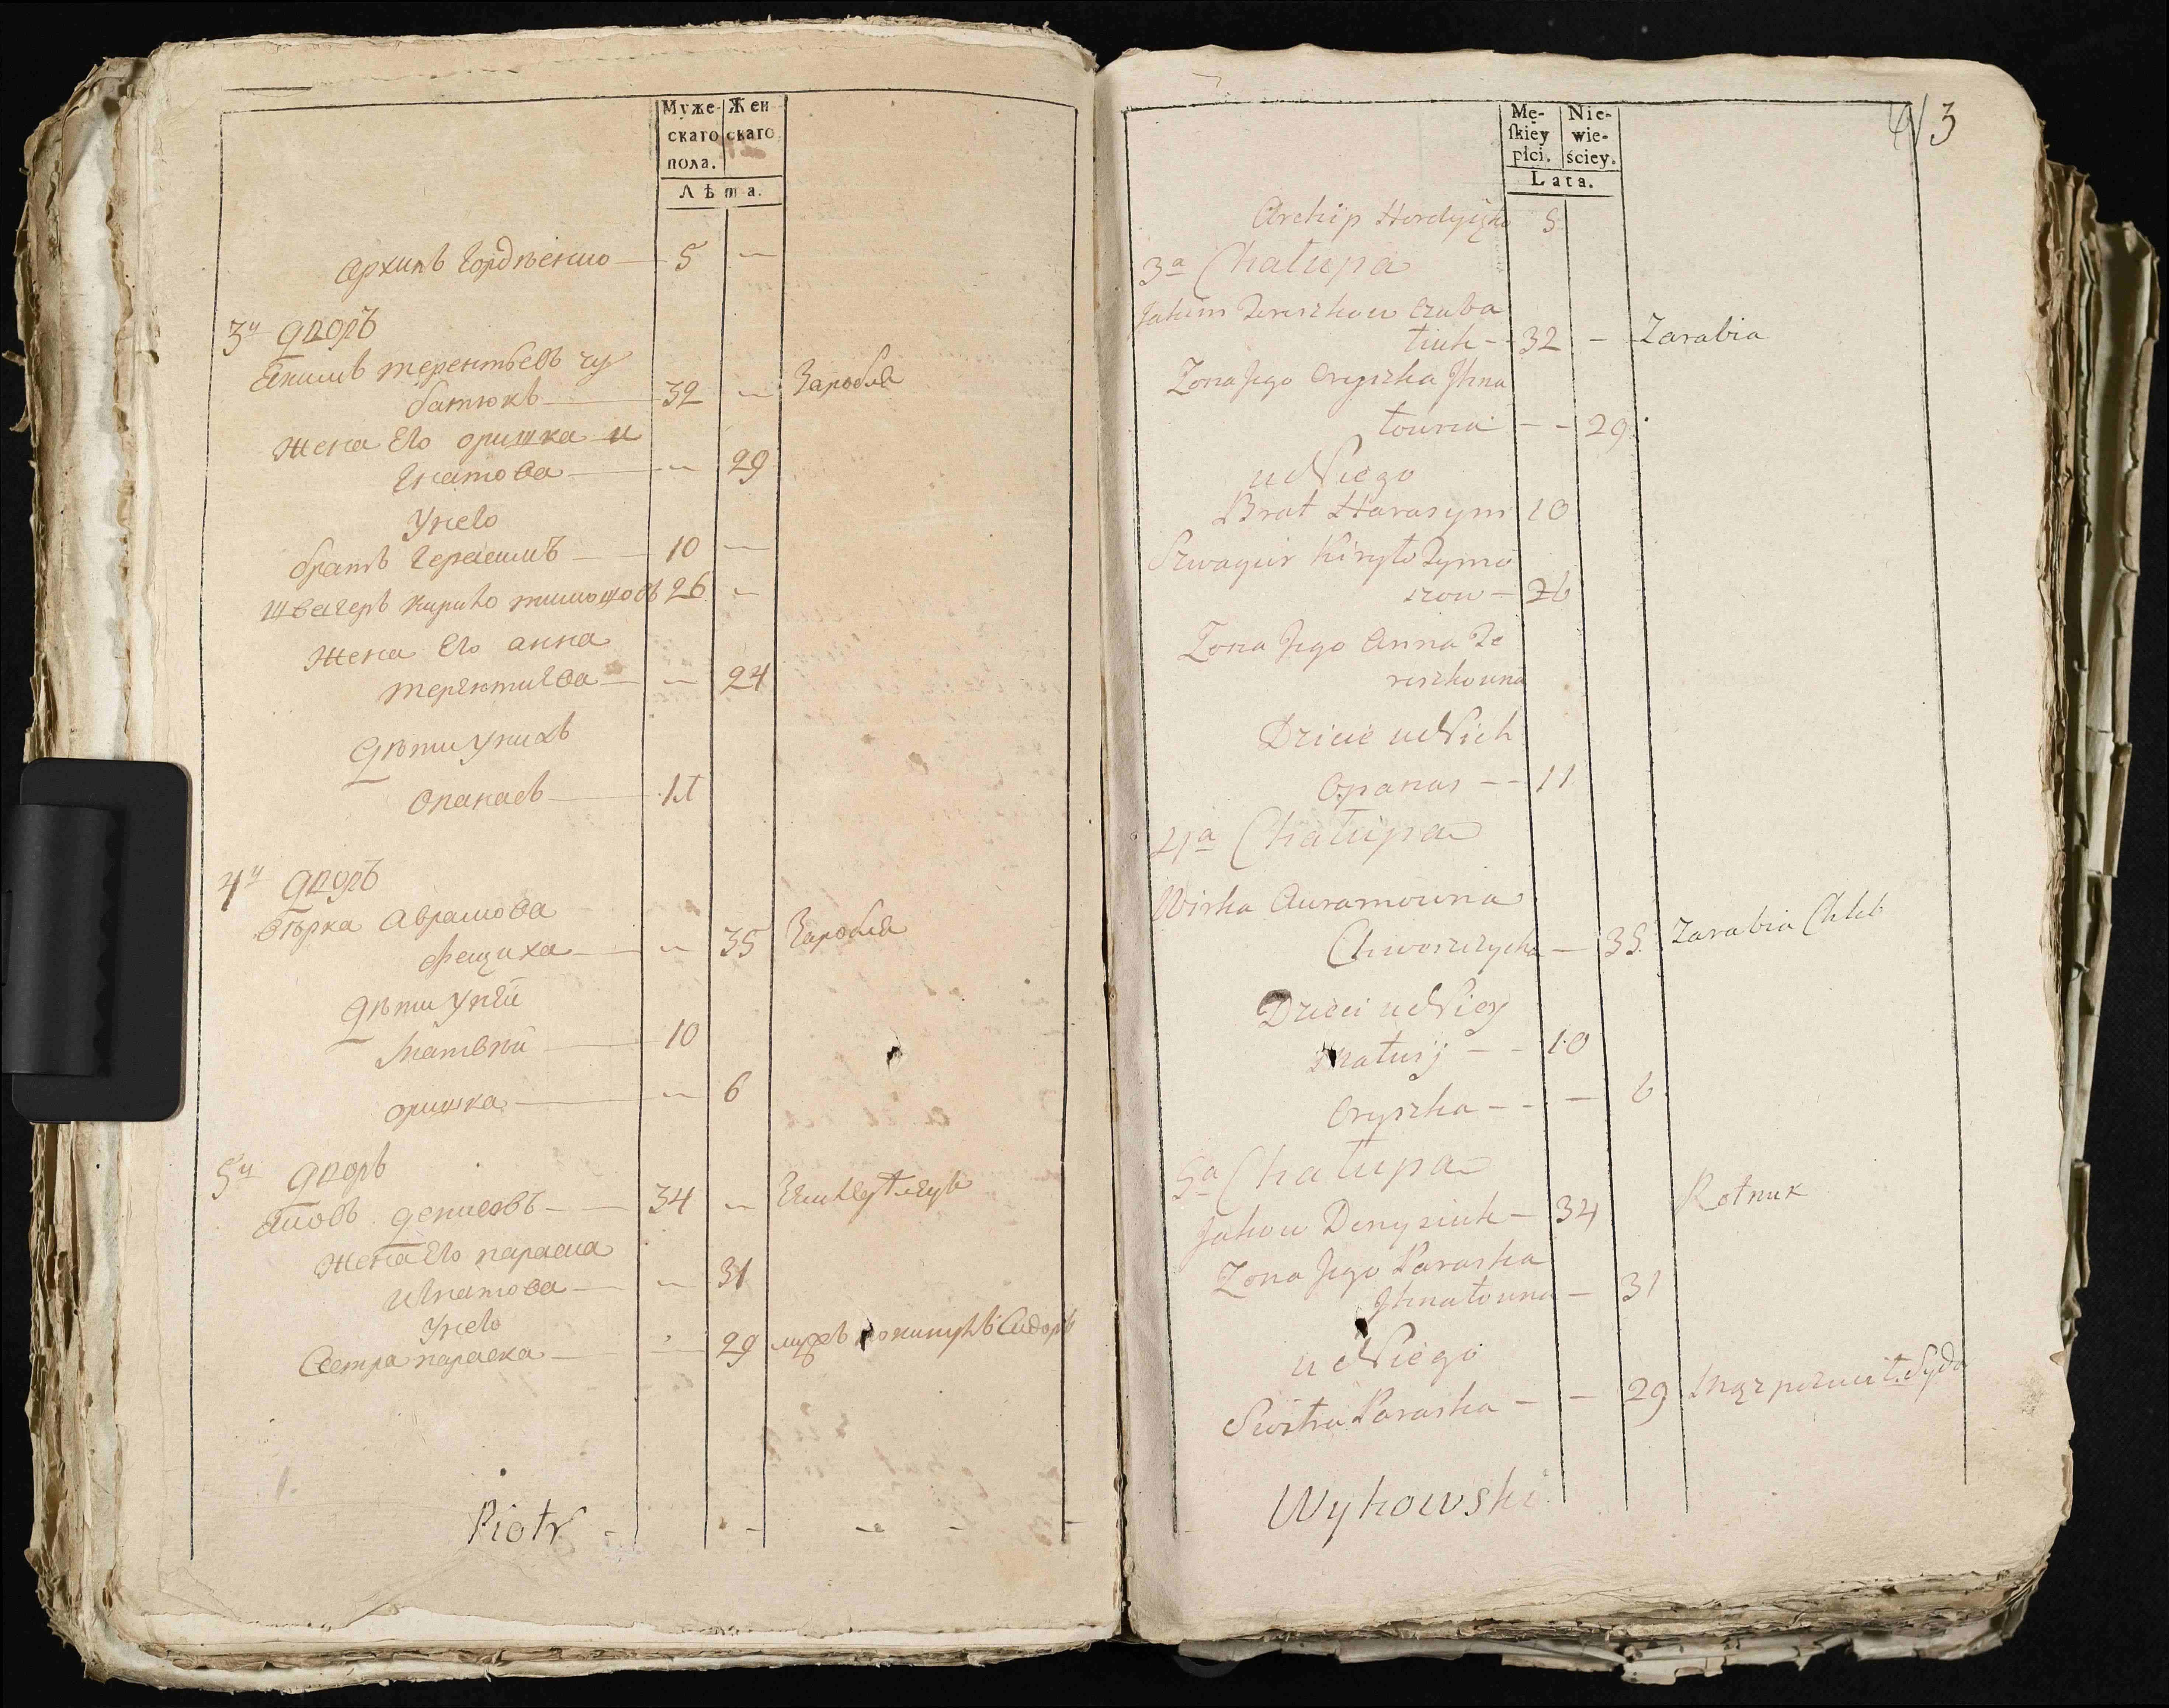 Муже-
скаго
пола.
Жен
скаго
Лѣта.
Архипъ Гордѣенко — 5 —
3й дворъ
Якимъ Терентьевъ чу
батюкъ — 32 — Заробля
Жена Его оришка и
гнатова — — 29
У него
братъ Герасимъ — 10 —
швагеръ кирило тимошовъ 26 —
Жена Его анна
— — 24
Дѣти у нихъ
Опанасъ — 11
4й дворъ
вѣрка аврамова
— — 35 Заробля
Дѣти у нѣй
Матвѣй — 10
оришка — — 6
5й дворъ
Яковъ денисовъ — 34 —
Жена Его параска
игнатова — — 31
У него
Сестра параска — — 29 мужъ покинулъ Сидоръ
Piotr - - - - -
4/3
Mę-
ſkiey
płci.
Nie-
wie-
ściey.
Lata.
Archip Hordyienko 5
3a Chałupa
Jakim Tereszkow Czuba
tiuk - 32 - Zarabia
Zona Jego Oryszka Ihna
towna - - 29
u Niego
Brat Harasym 10
Szwagier Kiryło Tymo
szow - 26
Zona Jego Anna Te
reszkowna
Dziecie u Nich
Opanas - - 11
4a Chałupa
Wirka Auramowna
Chwoszczycha - 35 Zarabia Chleb
Dzieci u Niey
Matwij - - 10
Oryszka - - - 6
5a Chałupa
Jakow Denysiuk - 34 Rolnik
Zona Jego Paraska
Ihnatowna - 31
u Niego
Siostra Paraska - - 29 Mąz
Wyhowski